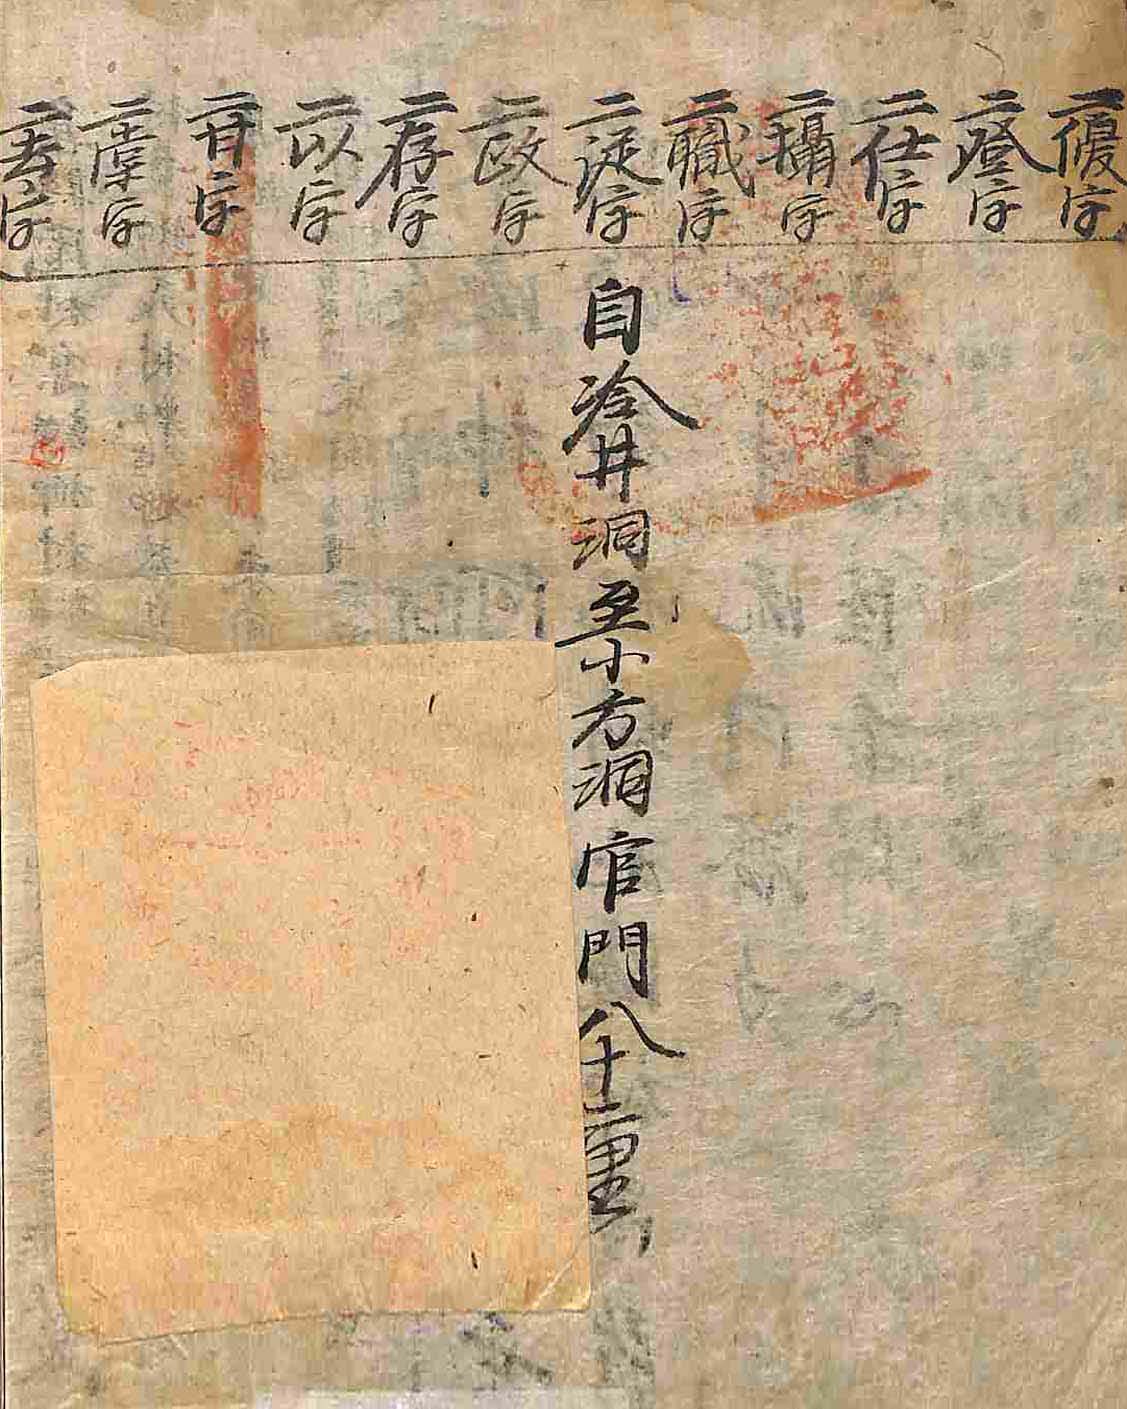 二優字
二登字
二仕字
二攝字
二職字
二從字
二政字
二存字
二以字
二甘字
二棠字
二去字
自冷井洞至小方洞官門八十二里